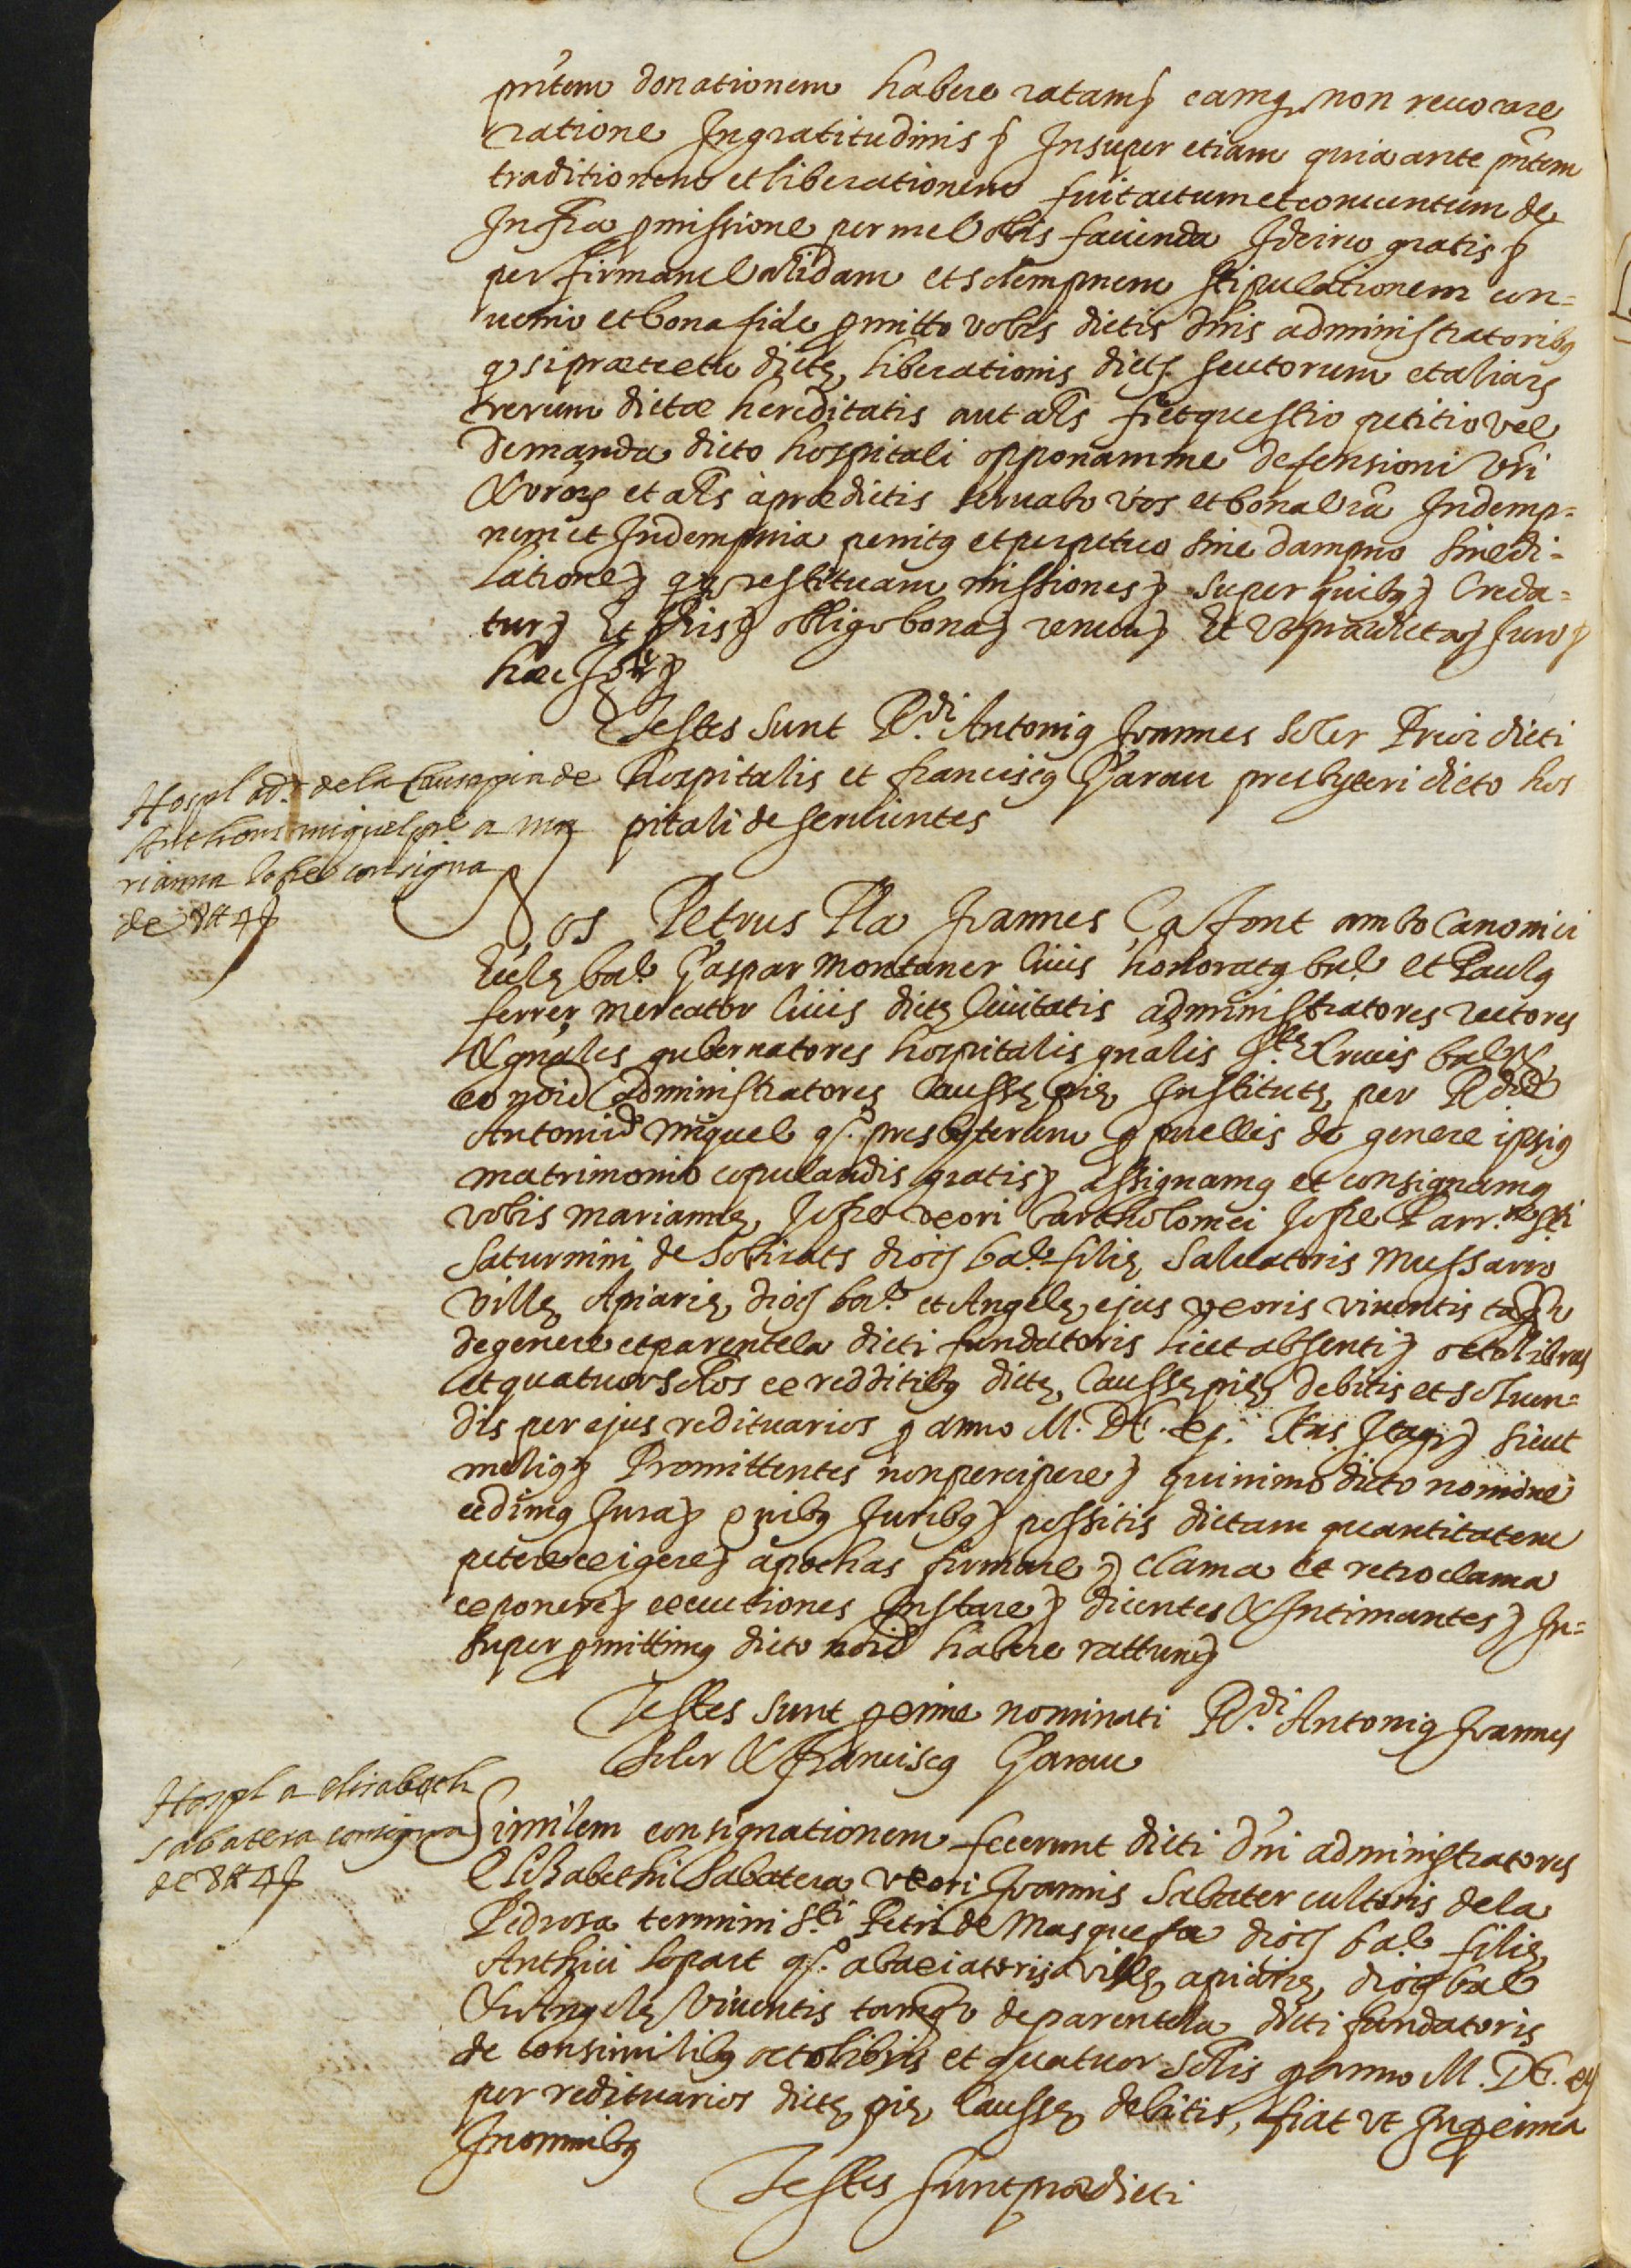 pñtem donationem habere ratam eamq non reuocare
ratione Ingratitudinis Insuper etiam quia ante pñtem
traditionem et liberationem fuit actum et conuentum de
Infra pmissione per me vobis facienda Idcirco gratis
per firmam validam et solempnem stipulationem con=
uenio et bona fide pmitto vobis dictis dñis administratoribq
q si prætextu dictę liberationis dict scutorum et aliarz
rerum dictæ hereditatis aut als fiet questio petitio vel
demanda dicto hospitali opponam me defensioni vñi
& vrorz et als à prædictis seruabo vos et bona vrã Indemp=
nem et Indempnia penitq et perpetuo sine dampno sine di=
latione restituam missiones super quibq Creda=
tur Et obligo bona Et vt prædicta Juro
hæc
Testes sunt R.di Antoniq Joannes Soler Prior dicti
hospitalis et francisq Garau presbyteri dicto hos
pitali deseruientes
Hospl ad.r de la Causa pia de
Anthoni miquel pre a ma
rianna Jofre consigna
de 8 tt 4 ſ
Nos Petrus Pla Joannes Çafont ambo Canonici
Eccłę bar Gaspar Montaner Ciuis honoratq bar et Paulq
ferrer mercator Ciuis dictę Ciuitatis administratores rectores
& gñales gubernatores hospitalis gñalis S.tę Crucis bar
eo noïe Administratores Caussę pię Institutę per Rdũ
Antoniũ Miquel q.º presbyterum p puellis de genere ipsiq
matrimonio copulandis gratis assignamq et consignamq
vobis Mariannę Jofre vxori Bartholomei Jofre Parr.æ Sti
Saturnini de Sobirats diocs bar filię Saluatoris Mussarro
villę Apiarię diocs bar et Angelę ejus vxoris viuentis tanq
de genere et parentela dicti fundatoris licet absenti octo libras
et quatuor solos ex redditibq dictę Caussę pię debitis et soluen=
dis per ejus redituarios p anno M. DC. xj. Itaq sicut
meliq Promittentes non percipere quinimo dicto nomine
cedimq Jura quibq Juribq possitis dictam quantitatem
petere exigere apochas firmare clama et retroclama
exponere executiones Instare dicentes & Intimantes In=
super pmittimq dicto noïe habere rattum
Testes sunt pxime nominati R.di Antoniq Joannes
Soler & francisq Garau
Hospl a elisabeth
sabatera consigna
de 8 tt 4 ſ
Similem consignationem fecerunt dicti dñi administratores
Elisabethi Sabatera vxori Joannis Sabater cultoris de la
Pedrosa termini S.ti Petri de Masquefa diocs bar filię
Anthici Lopart q.º abaxiatoris villę apiarię diocs bar
& Angelę viuentis tamq de parentela dicti fundatoris
de consimilibq octo libris et quatuor solis p anno M. DC. xj
per redituarios dictę pię Caussę debitis, fiat vt In pxima
In omnibq
Testes sunt prædicti